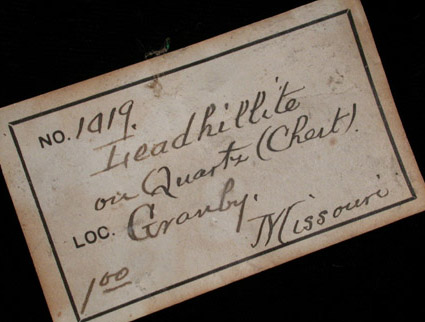 NO. 1919.
Leadhillite
on Quartz (Chert).
LOC. Granby.
Missouri
1 00